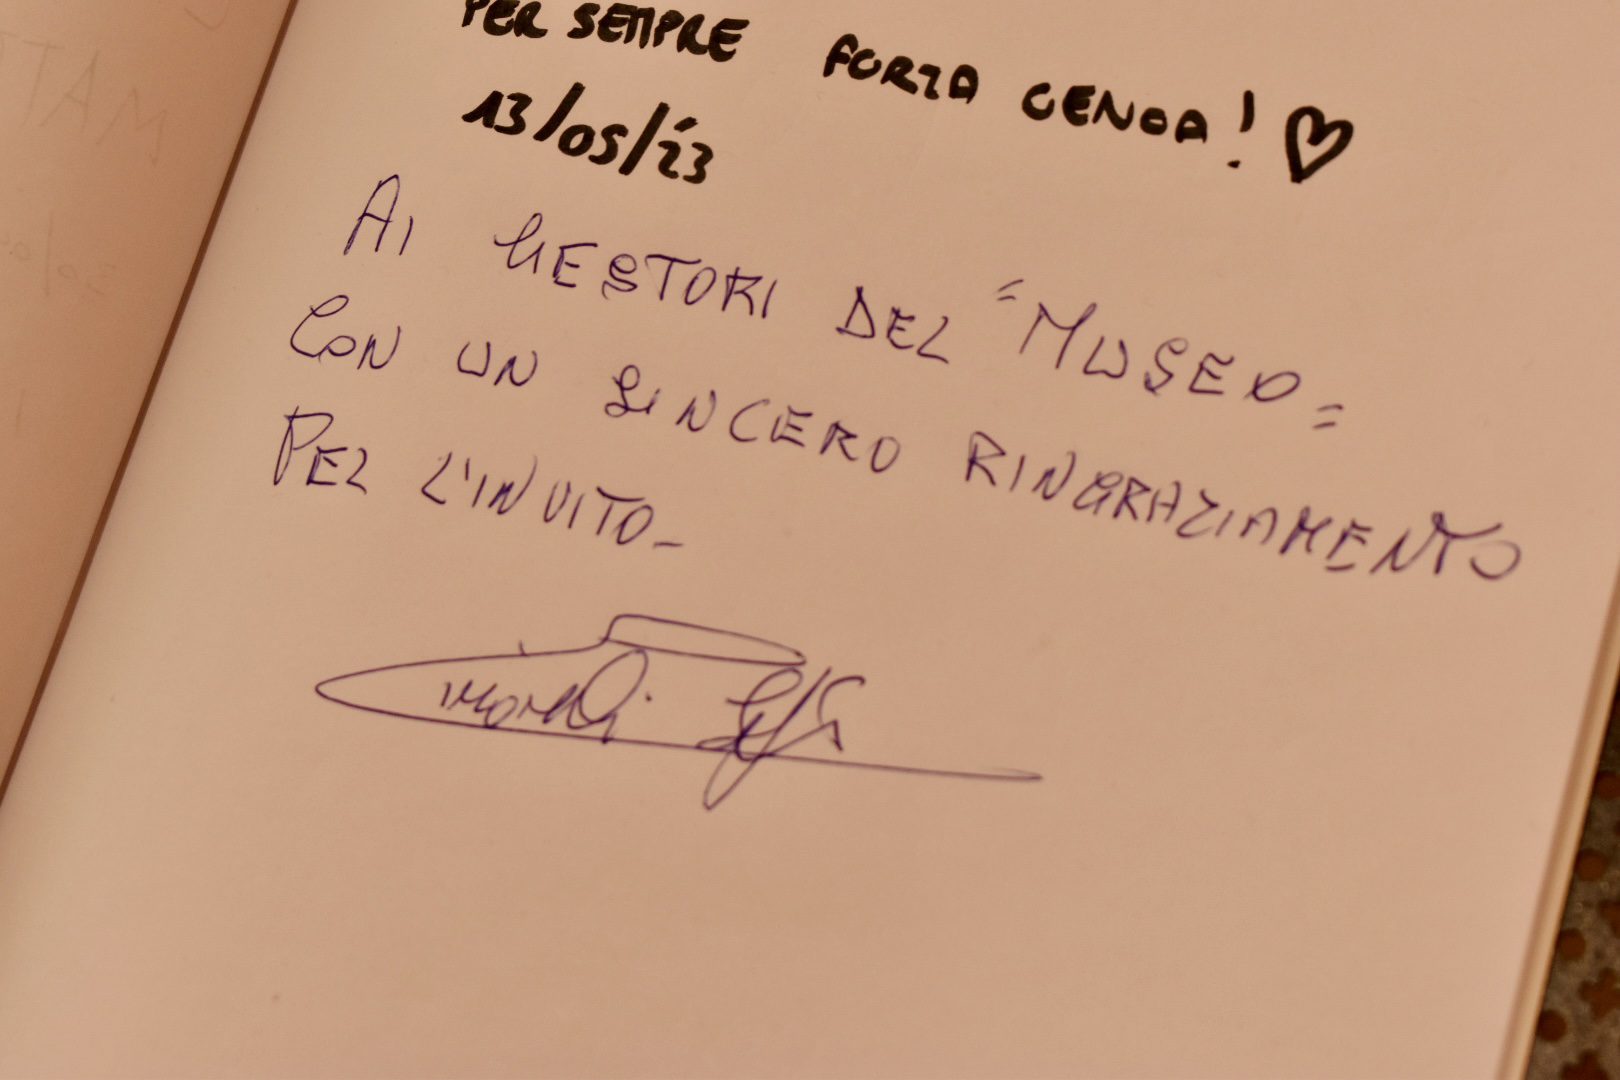 PER SEMPRE FORZA GENOA!
13/05/23
AI GESTORI DEL "MUSEO"
CON UN SINCERO RINGRAZIAMENTO
PER L'INVITO_